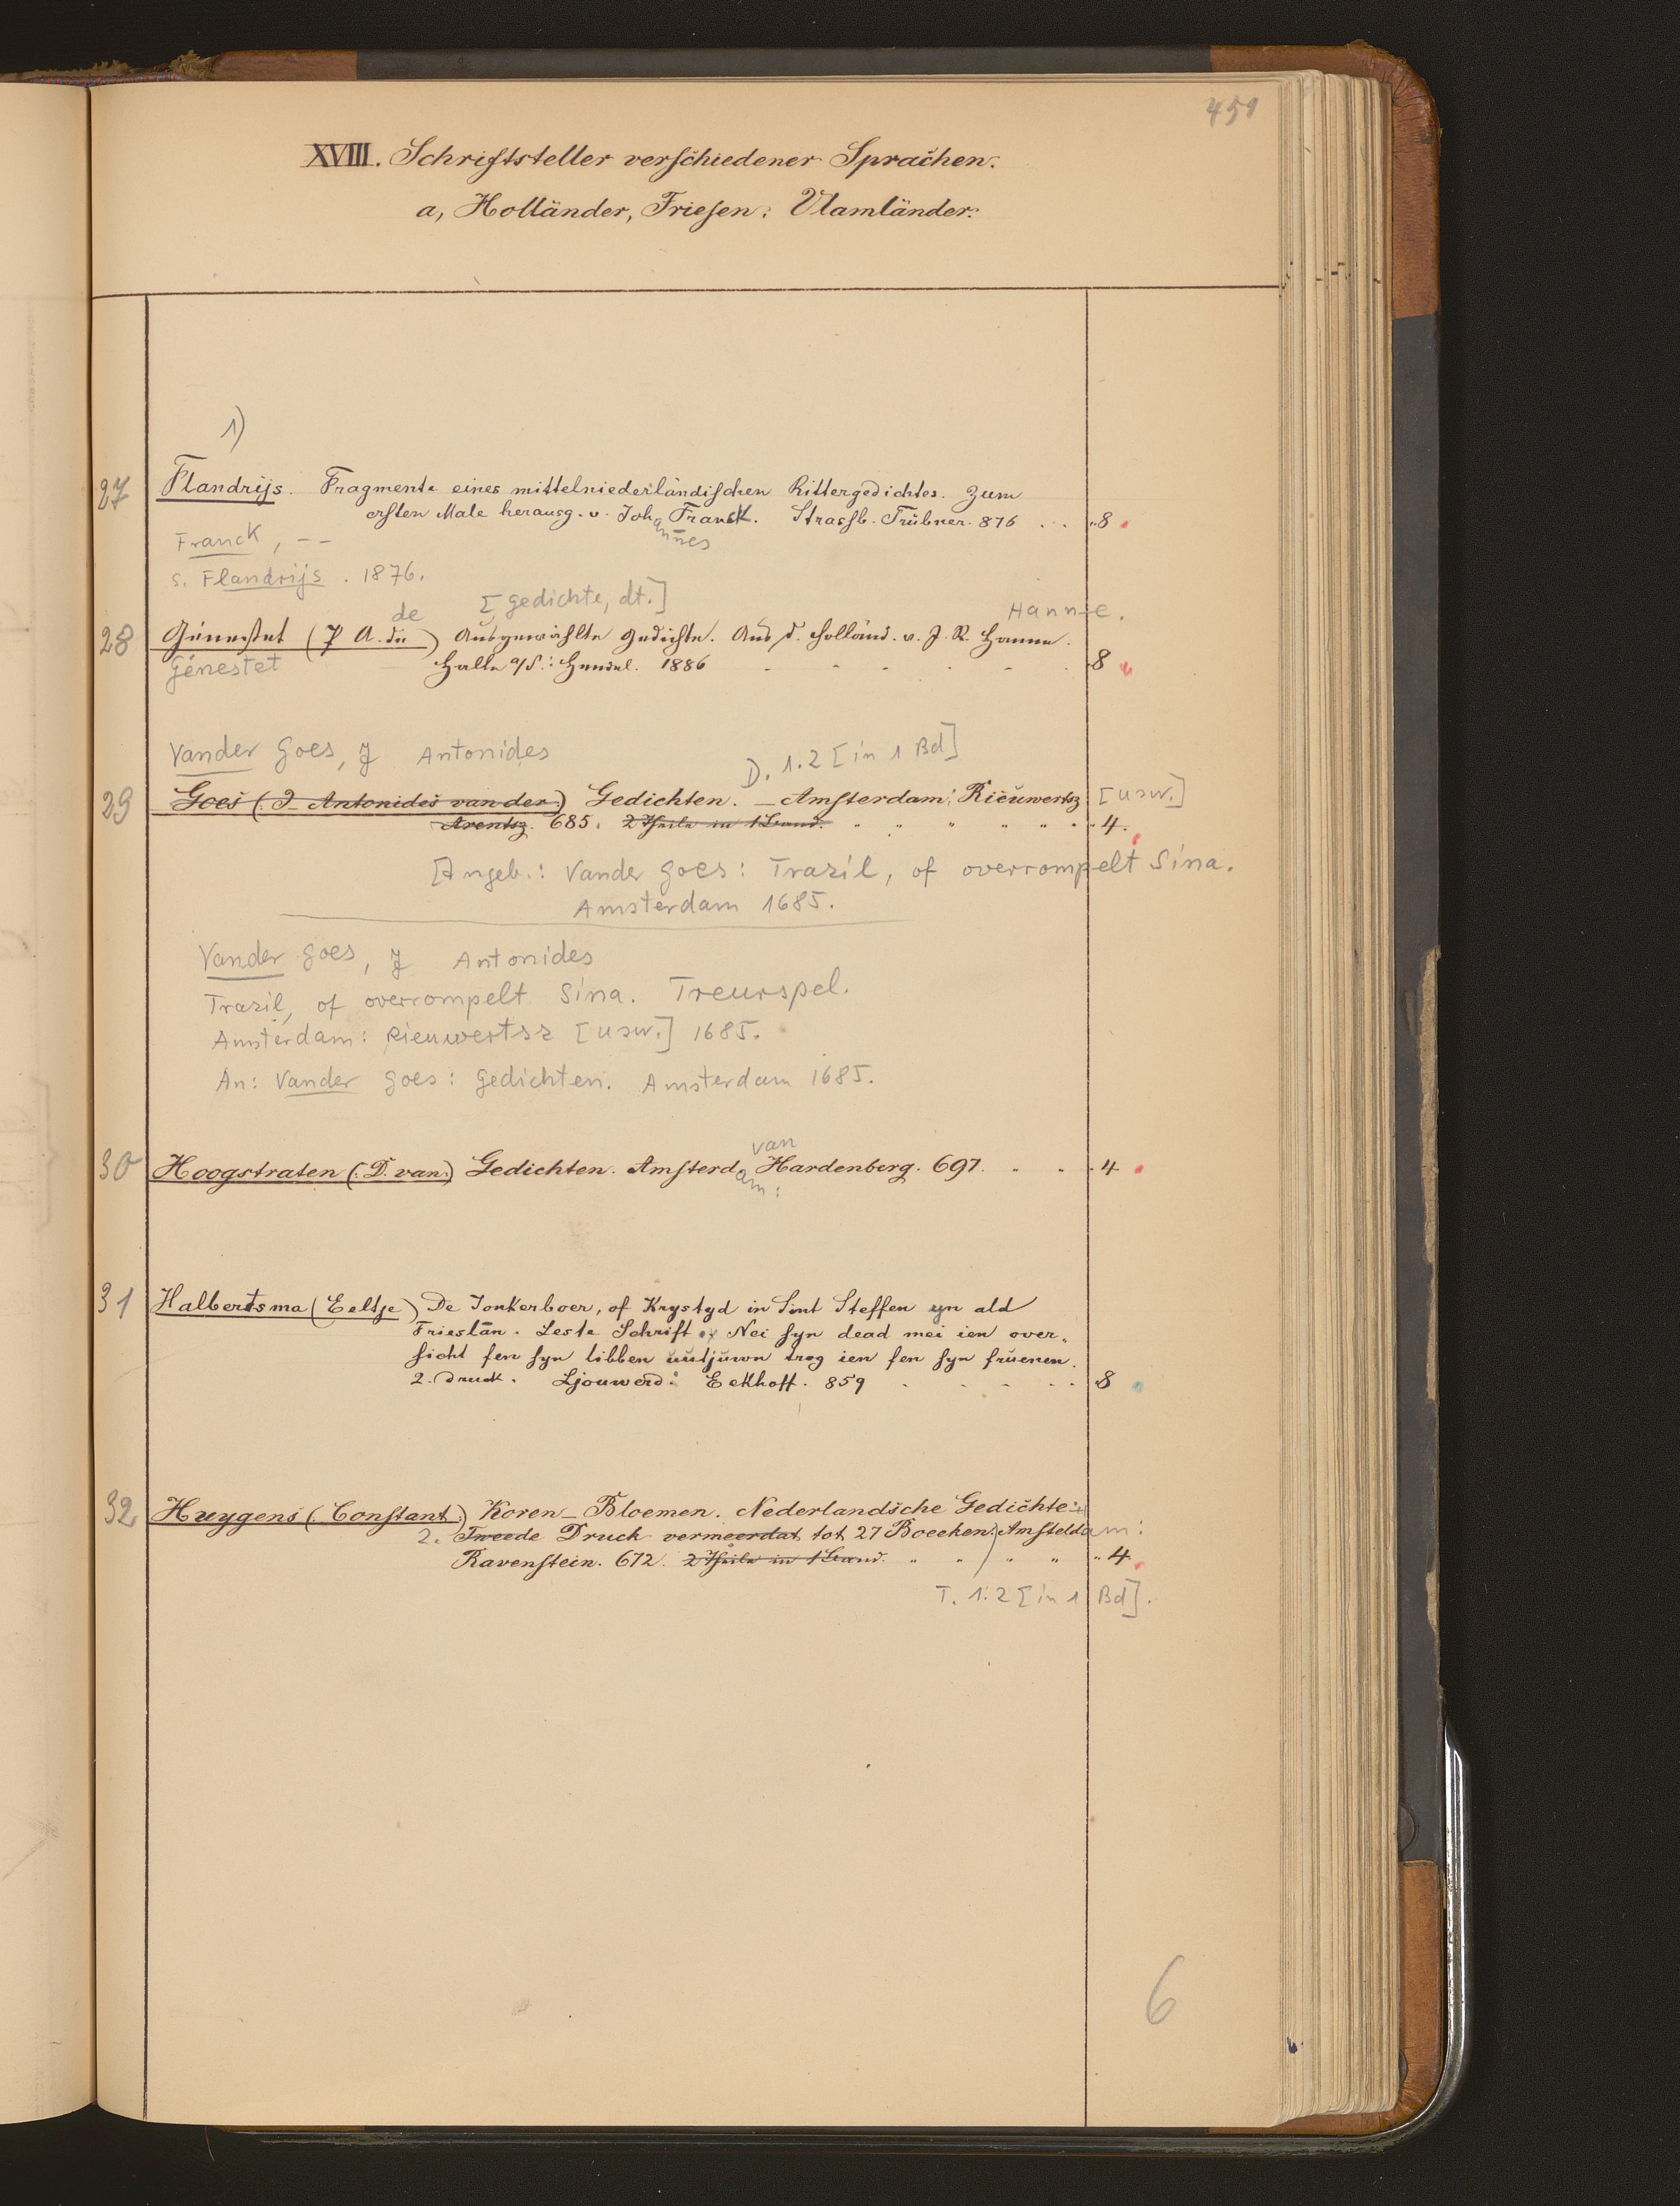 451
XVIII. Schriftsteller verschiedener Sprachen.
a, Holländer, Friesen, Vlamländer.
1)
27 Flandrijs. Fragmente eines mittelniederländischen Rittergedichtes. Zum
ersten Male herausg. v. Johannes Franck. Strassb. Trübner. 876 . . . 8
Franck, --
s. Flandrijs. 1876.
de [Gedichte, dt.] Hanne.
28 Génestet (P A. de) Ausgewählte Gedichte. Aus d. Holländ. v. J. R. Hanne.
Génestet Halle a/S.: Hendel. 1886 8
Vander Goes, J Antonides D. 1.2 [in 1 Bd]
29 Goes (J. Antonides van der) Gedichten. — Amsterdam: Rieuwertsz [usw.]
Arentsz. 685. 2 Theile in 1 Band. 4.
[Angeb.: Vander Goes: Trazil, of overrompelt Sina.
Amsterdam 1685.
Vander Goes, J Antonides
Trazil, of overrompelt Sina. Treurspel.
Amsterdam: Rieuwertsz [usw.] 1685.
An: Vander Goes: Gedichten. Amsterdam 1685.
van
30 Hoogstraten (D. van) Gedichten. Amsterdam: Hardenberg. 697. 4
31 Halbertsma (Eeltje) De Jonkerboer, of Krystyd in Sint Steffen yn ald
Frieslân. Leste Schrift. Nei syn dead mei ien over-
sicht fen syn libben uutjuwn trog ien fen syn fruenen.
2. Druck. Ljouwerd: Eekhoff. 859 8
32 Huygens (Constant.) Koren-Bloemen. Nederlandsche Gedichten
2. Tweede Druck vermeerdat tot 27 Boecken. Amsteldam:
Ravenstein. 672. 2 Theile in 1 Band. 4
T. 1.2 [in 1 Bd].
6